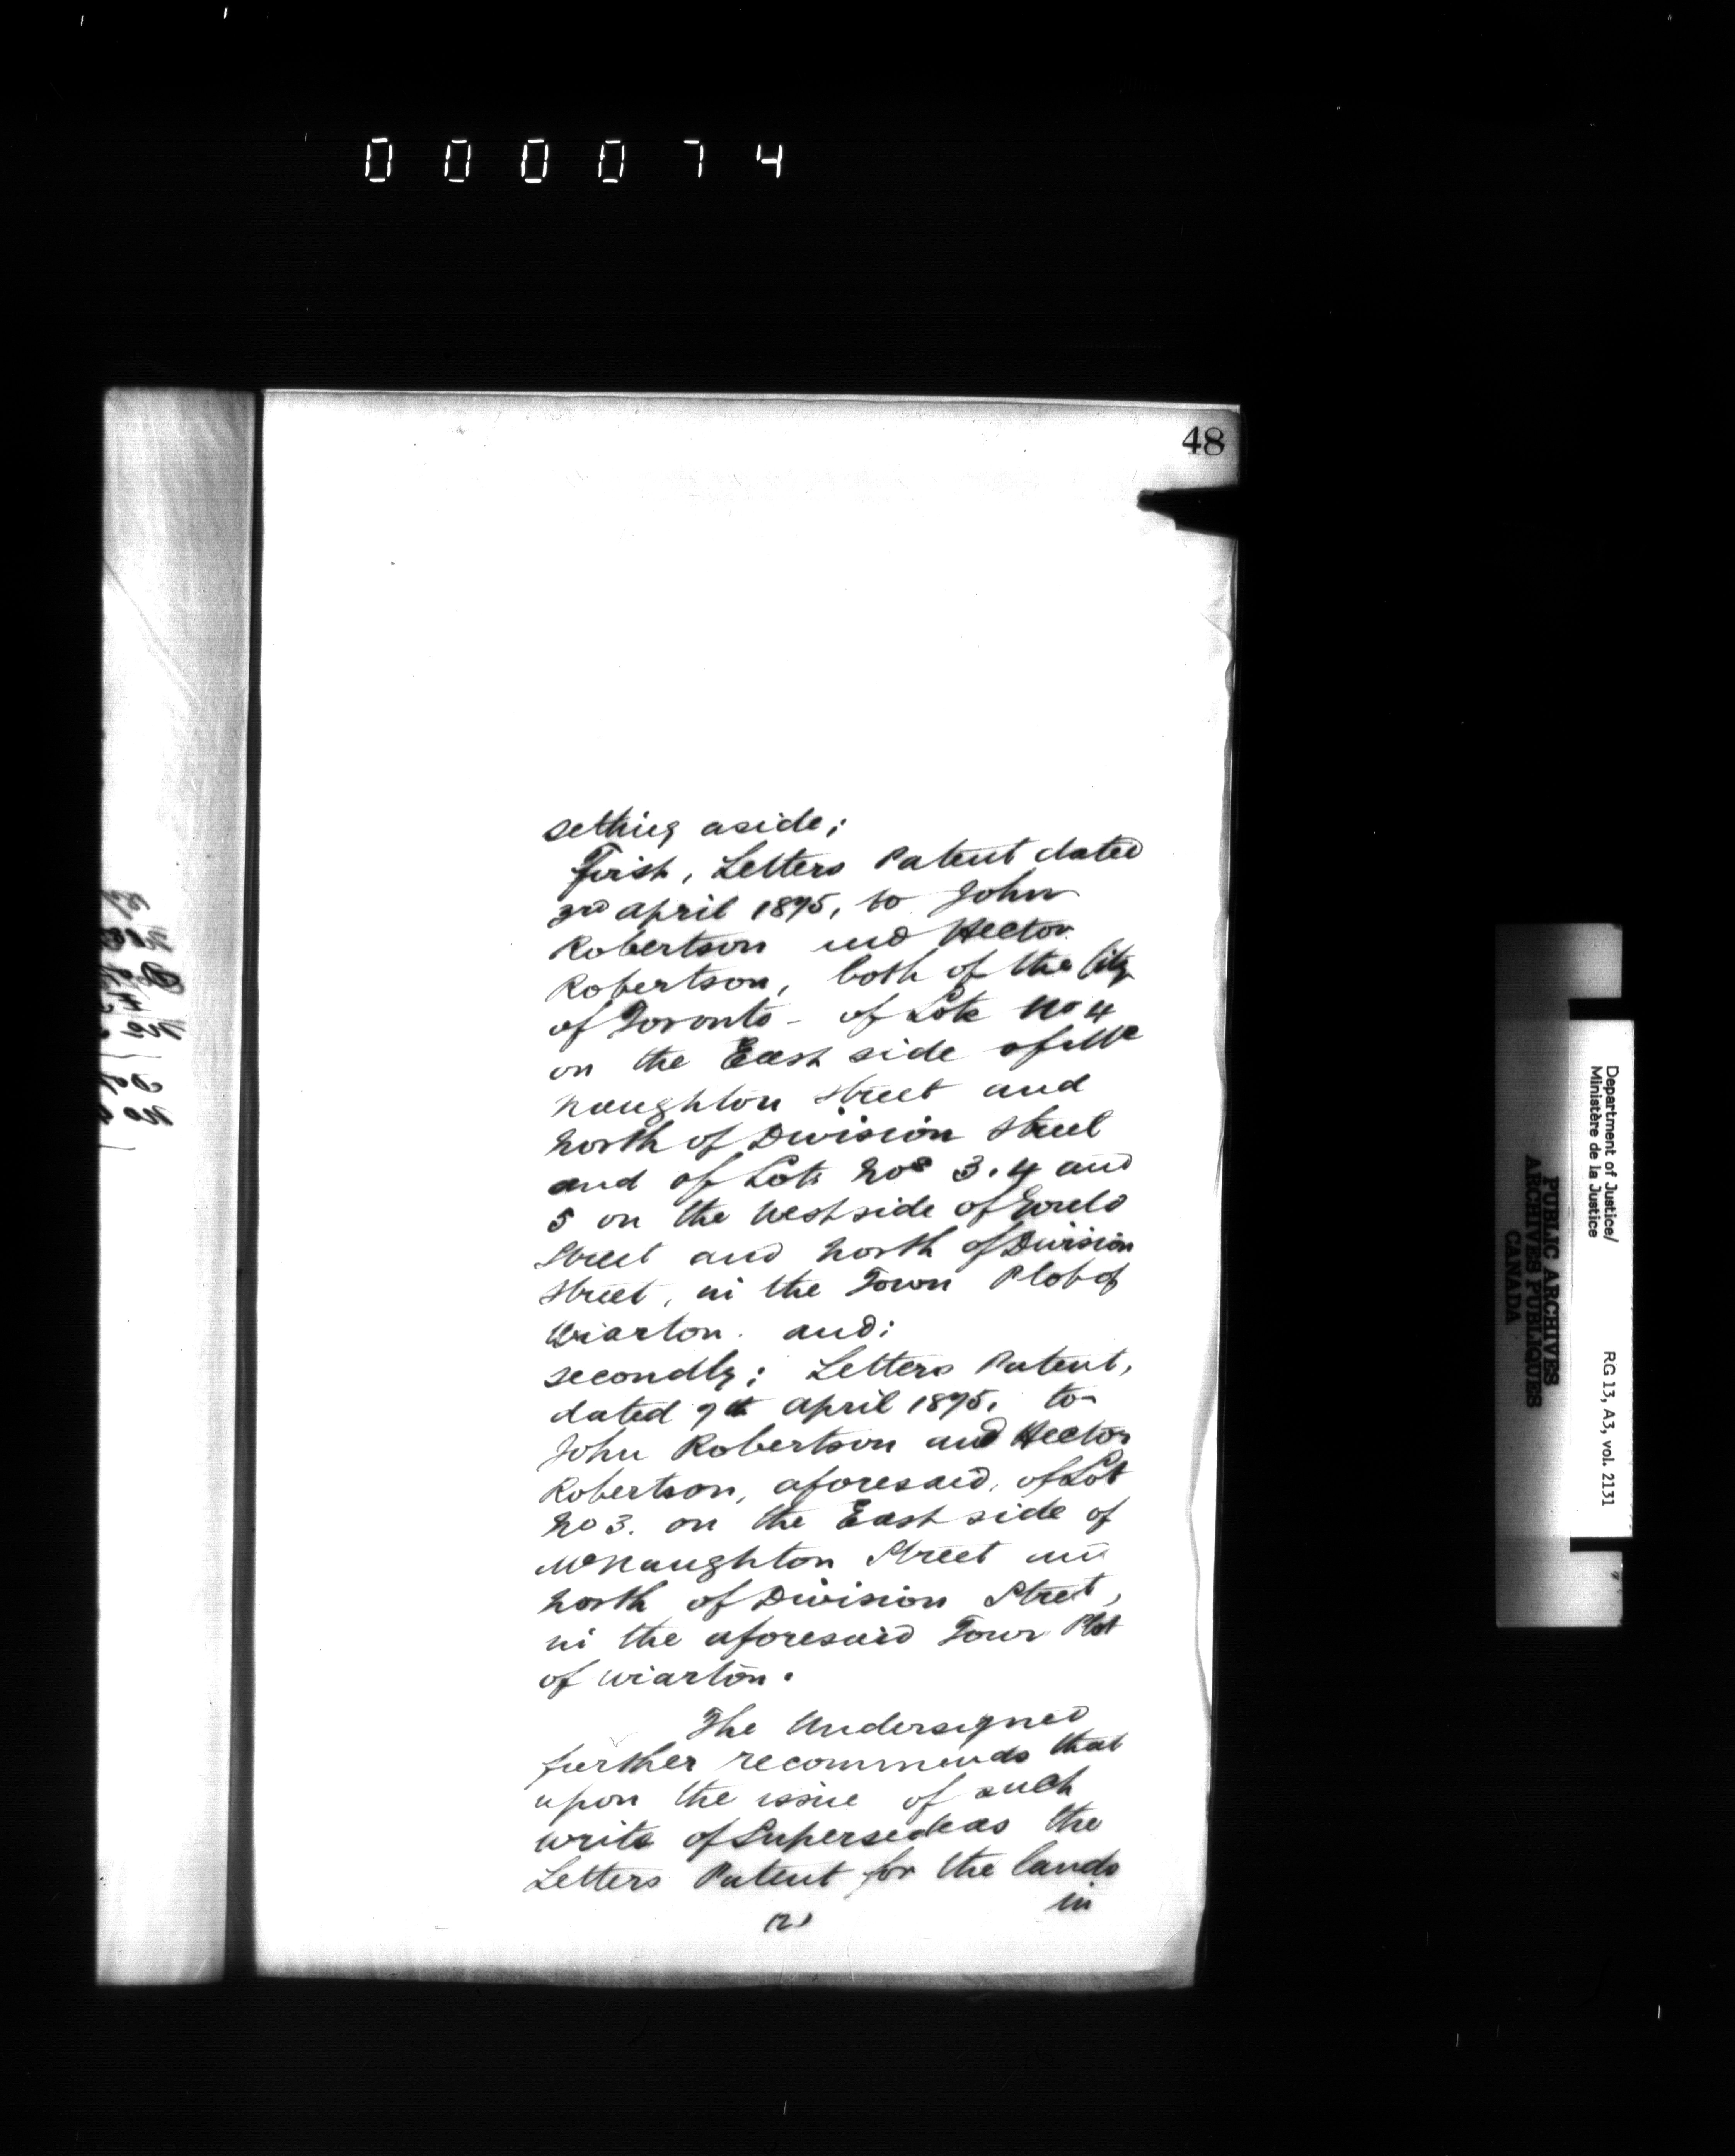 000074
48
setting aside;
First, Letters Patent dated
3rd April 1895, to John
Robertson and Hector
Robertson, both of the City
of Toronto - of Lot No 4
on the East side of Mc
naughton Street and
north of Division Street
and of Lots Nos 3.4 and
5 on the West side of Gould
Street and North of Division
Street, in the Town Plot of
Wiarton. and;
secondly; Letters Patent,
dated 9th April 1895, to
John Robertson and Hector
Robertson, aforesaid, of Lot
No 3. on the East side of
McNaughton Street and
north of Division Street,
in the aforesaid Town Plot
of Wiarton.
The Undersigned
further recommends that
upon the issue of such
writs of Supersedeas the
Letters Patent for the lands
in
(2)
Department of Justice/
Ministère de la Justice
RG 13, A3, vol. 2131
PUBLIC ARCHIVES
ARCHIVES PUBLIQUES
CANADA